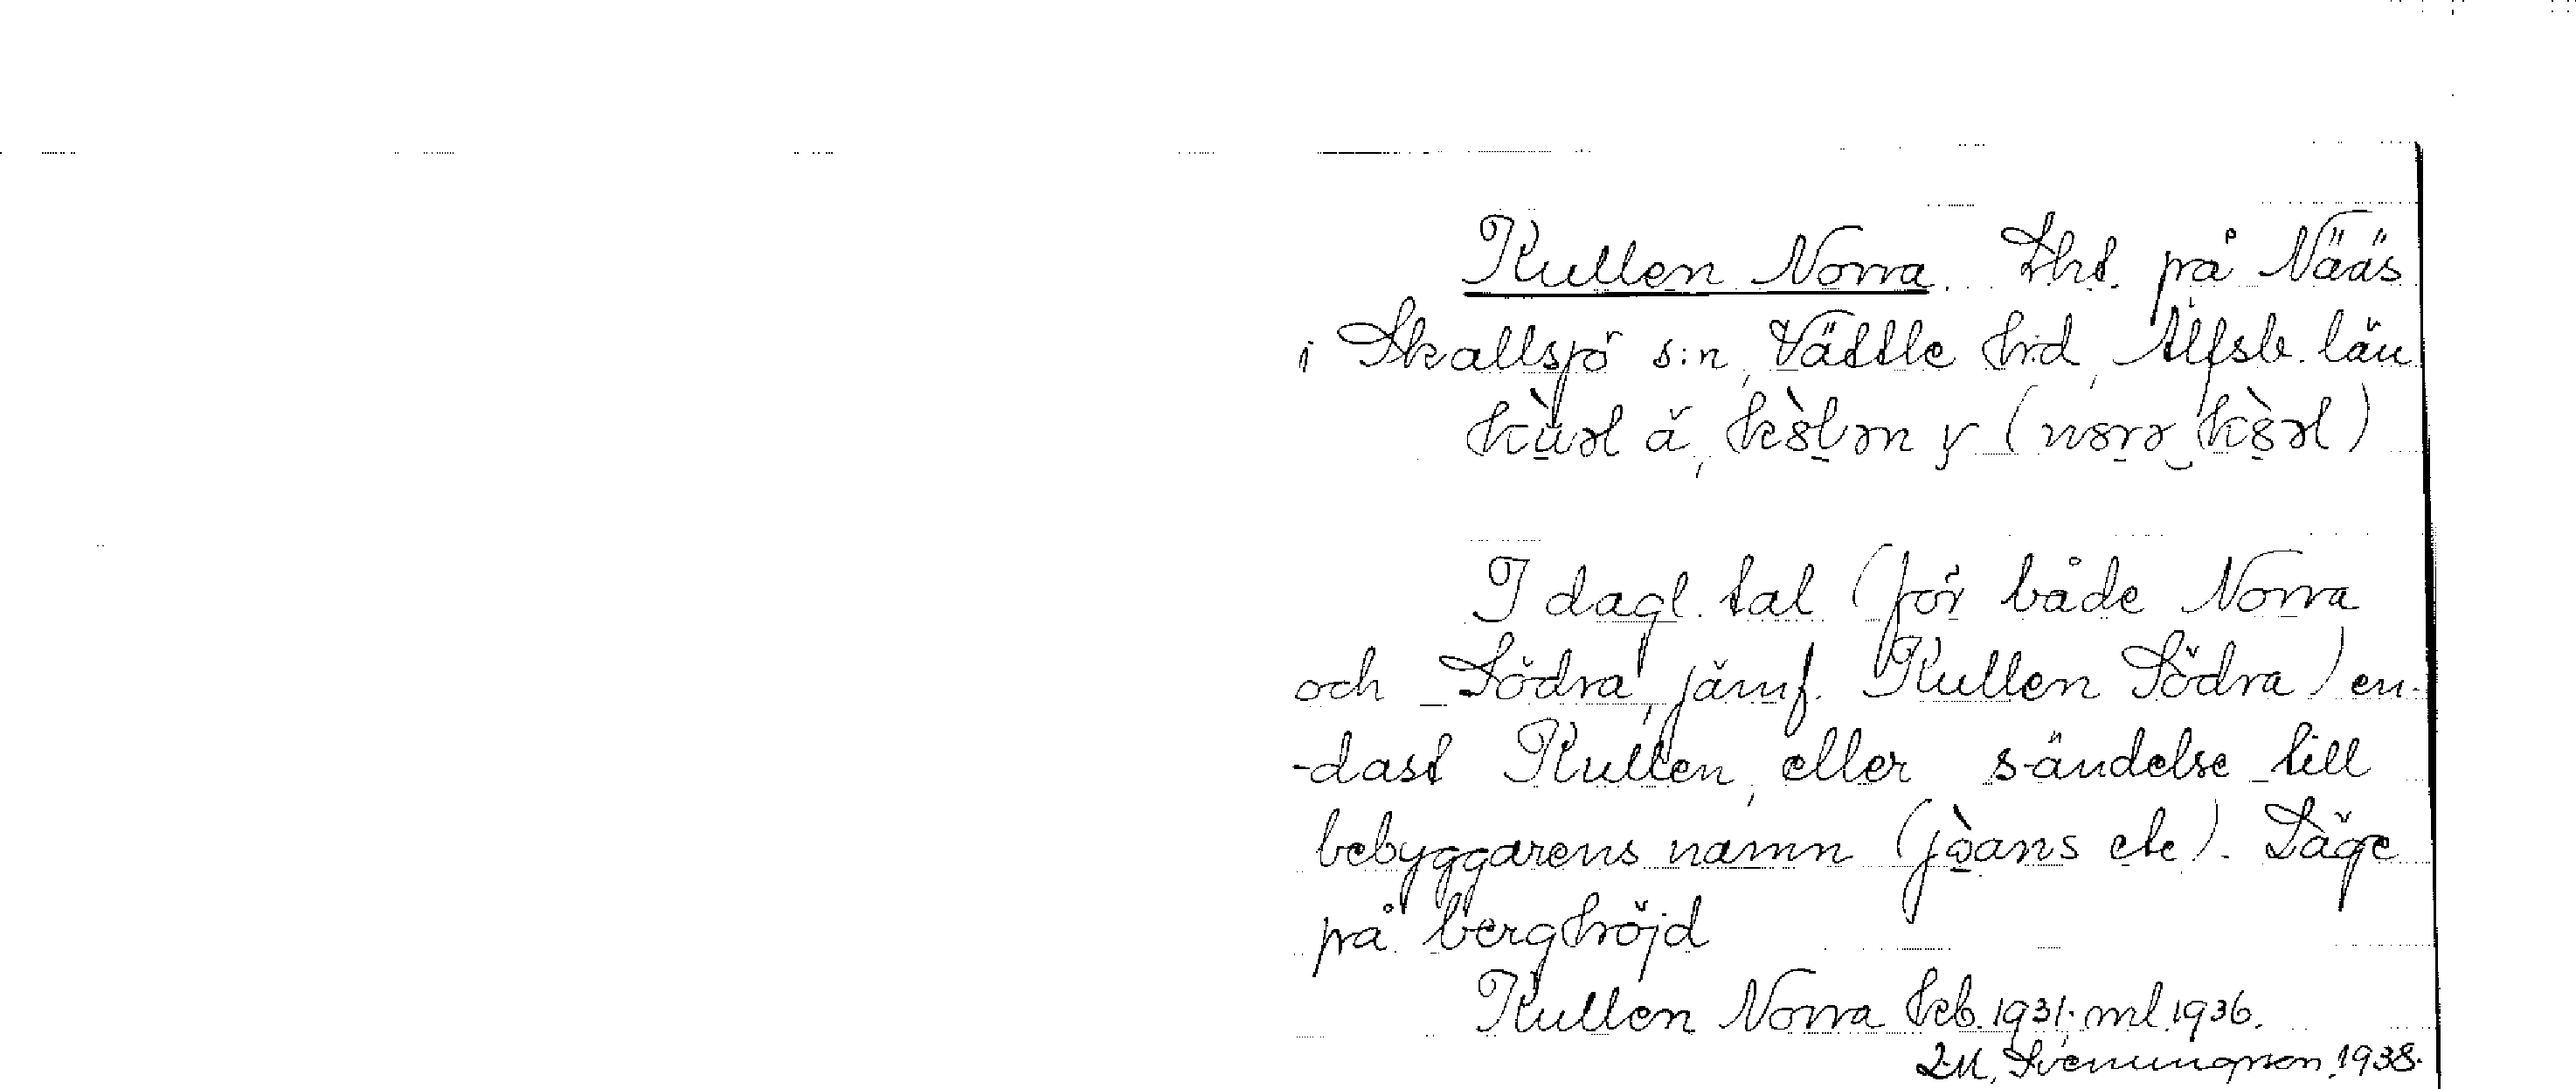 Kullen Norra. Lht. på Nääs
i Skallsjö s:n, Vättle hrd, Älfsb. län
I dagl. tal (för både Norra
och Södra, jämf. Kullen Södra) en-
-dast Kullen, eller s-ändelse till
bebyggarens namn (jòans etc). Läge
på berghöjd
Kullen Norra kb. 1931. ml. 1936.
Svenungsson 1938.